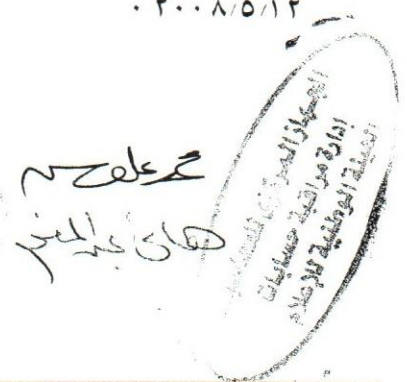 ٢٠٠٨/٥/١٢ .
محمد علي حسن
هانى عبد المنعم
الجهاز المركزي للمحاسبات
إدارة مراقبة حسابات
الهيئة الوطنية للإعلام